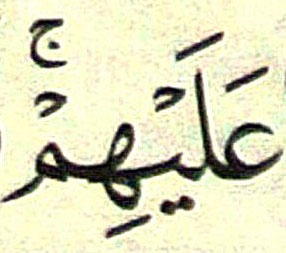 عَلَيْهِمْۚ